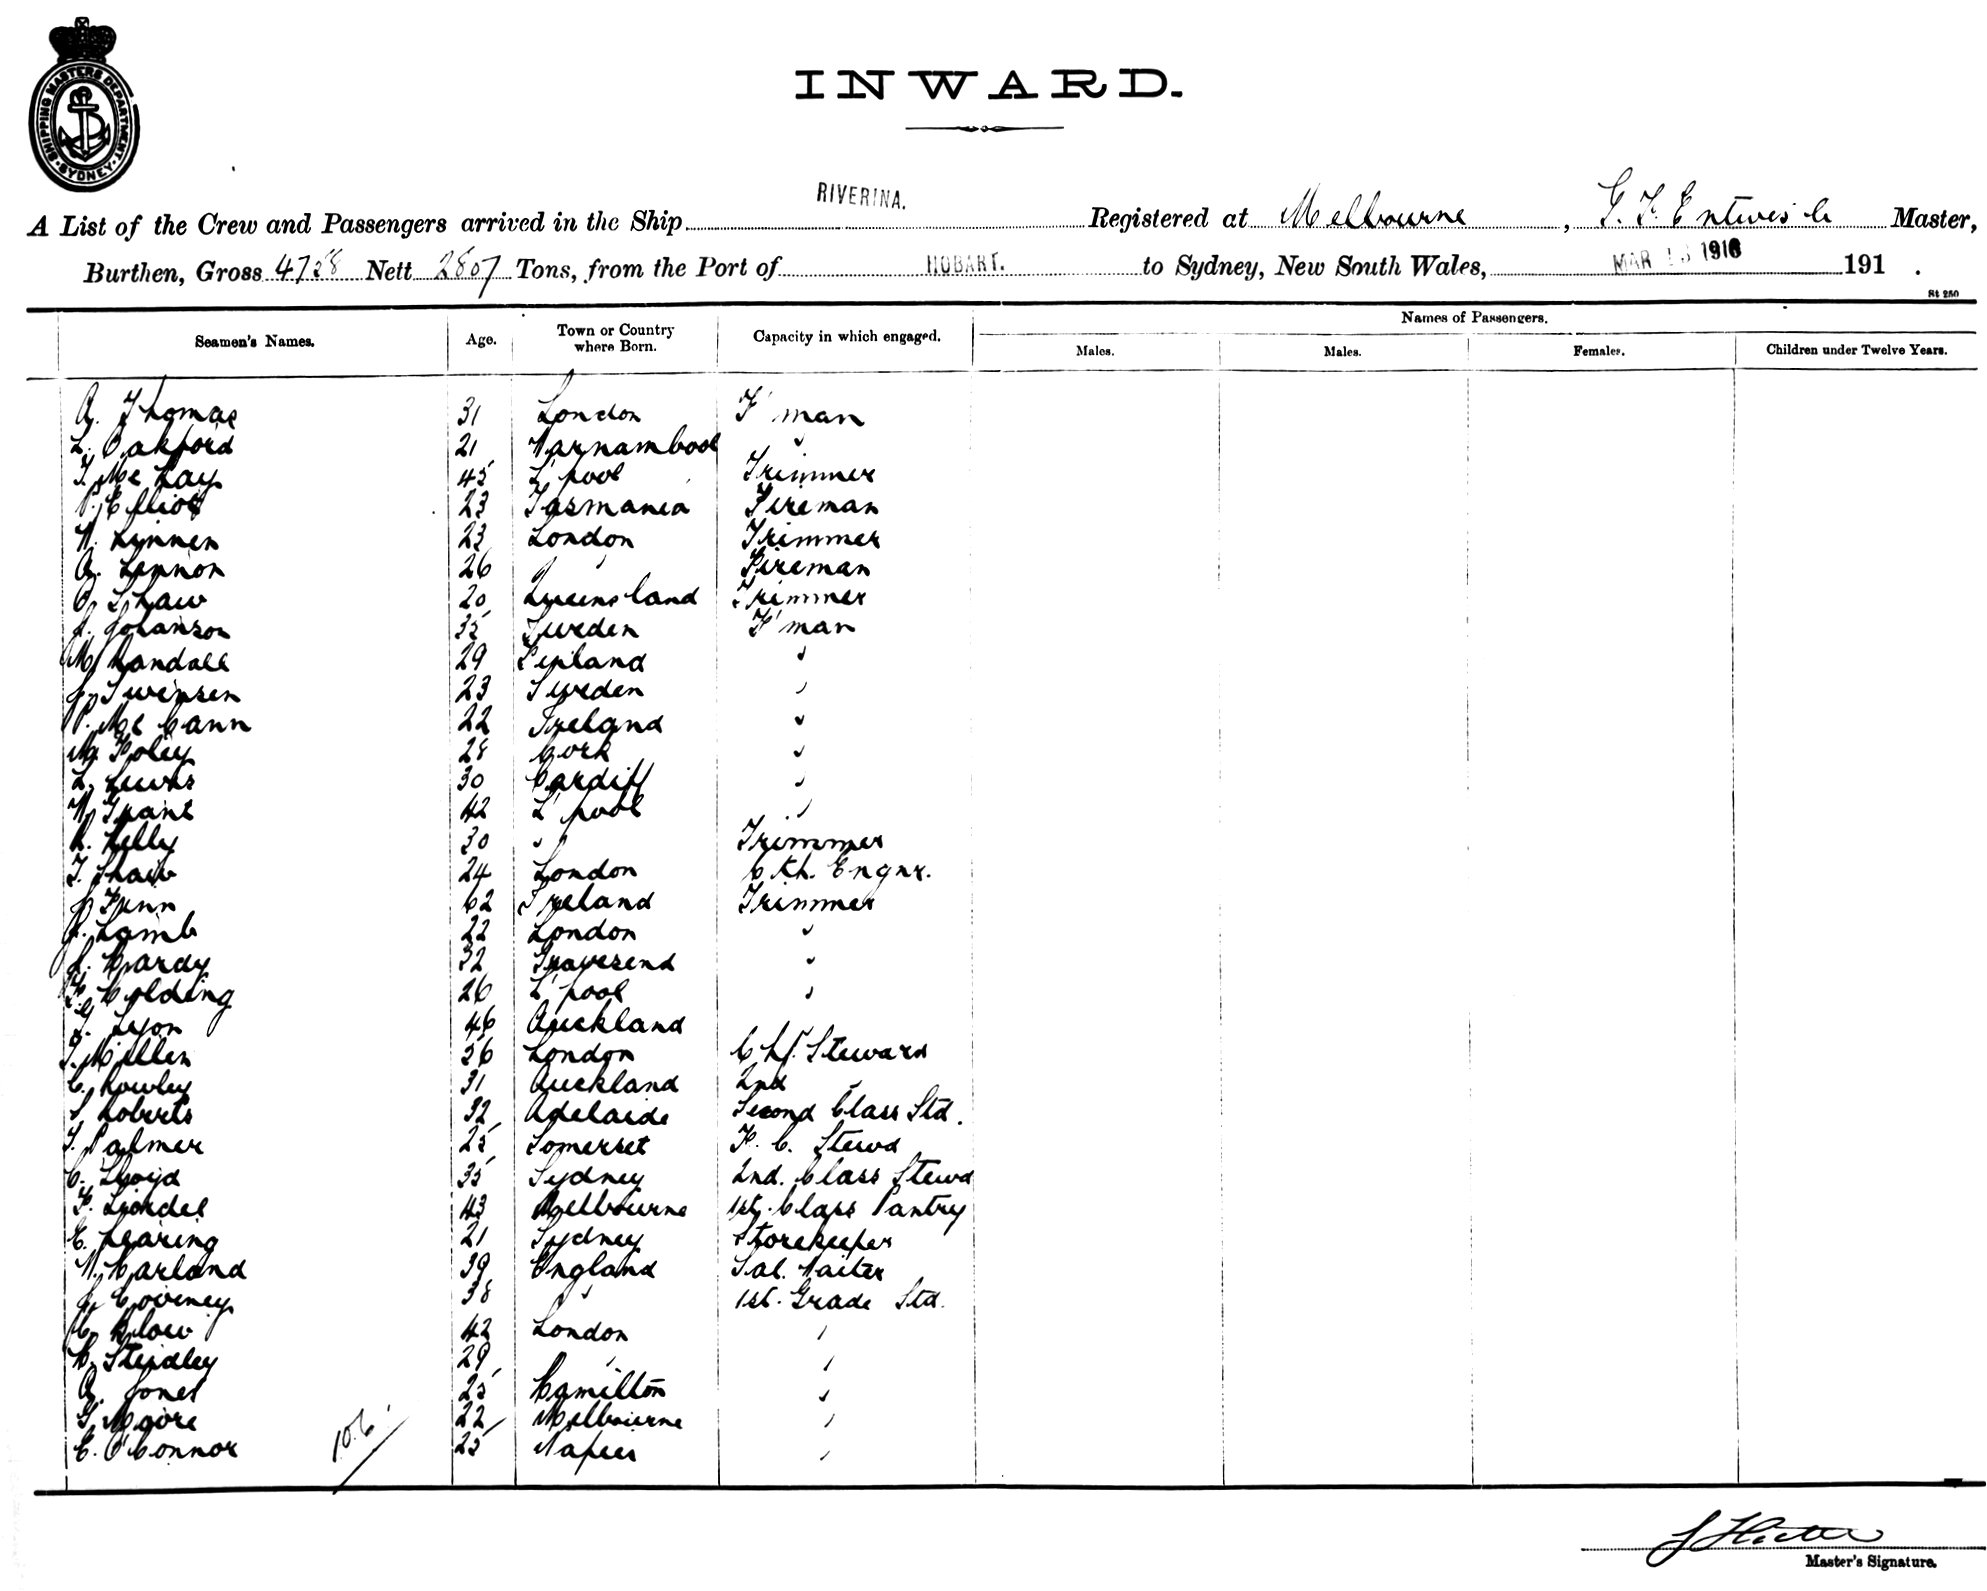 SHIPPING MASTERS DEPARTMENT. SYDNEY
INWARD.
A List of the Crew and Passengers arrived in the Ship RIVERINA. Registered at Melbourne, G. F. Entwisle Master,
Burthen, Gross 4758 Nett 2807 Tons, from the Port of HOBART. to Sydney, New South Wales, MAR 1916 191 .
St 250
Seamen's Names. Age. Town or Country where Born. Capacity in which engaged. Names of Passengers.
Males. Males. Females. Children under Twelve Years.
A. Thomas 31 London F'man
L. Oakford 21 Warnambool "
T. McKay 45 L'pool Trimmer
P. Elliot 23 Tasmania Fireman
W. Lynnen 23 London Trimmer
A. Lennon 26 " Fireman
O. Shaw 20 Queensland Trimmer
J. Johanson 35 Sweden F'man
M. Randall 29 Finland "
J. Swensen 23 Sweden "
P. McCann 22 Ireland "
M. Foley 28 Cork "
L. Lewis 30 Cardiff "
W. Grant 42 L'pool "
R. Kelly 30 " Trimmer
T. Shaw 24 London 6th. Engnr.
J. Finn 62 Ireland Trimmer
J. Lamb 22 London "
J. Hardy 32 Gravesend "
F. Holding 26 L'pool "
Lyon 46 Auckland
T. Millen 56 London Chf. Steward
C. Rowley 31 Auckland 2nd "
S. Roberts 32 Adelaide Second Class Std.
T. Palmer 25 Somerset F. C. Stewd
C. Lloyd 35 Sydney 2nd. Class Stewd
F. 43 Melbourne 1st. Class Pantry
E. Fearing 21 Sydney Storekeeper
W. Harland 39 England Sal. Waiter
J. Coveney 38 " 1st. Grade Std.
C. Blow 42 London "
H. Stendley 29 " "
A. Jones 25 Hamilton "
G. Moore 22 Melbourne "
E. O'Connor 25 Napier "
106
Master's Signature.